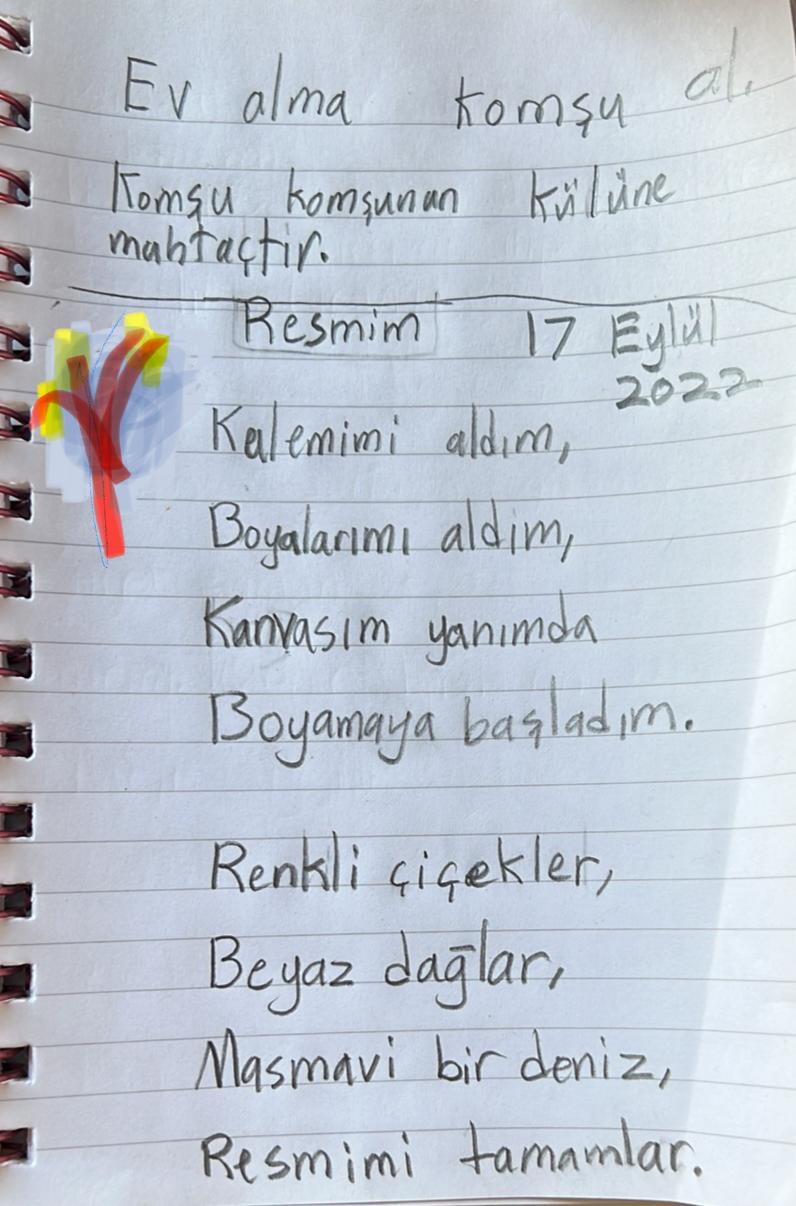 Ev alma komşu al.
Komşu komşunan külüne
mahtaçtir.
Resmim 17 Eylül
2022
Kalemimi aldım,
Boyalarımı aldim,
Kanvasım yanımda
Boyamaya başladım.
Renkli çiçekler,
Beyaz dağlar,
Masmavi bir deniz,
Resmimi tamamlar.